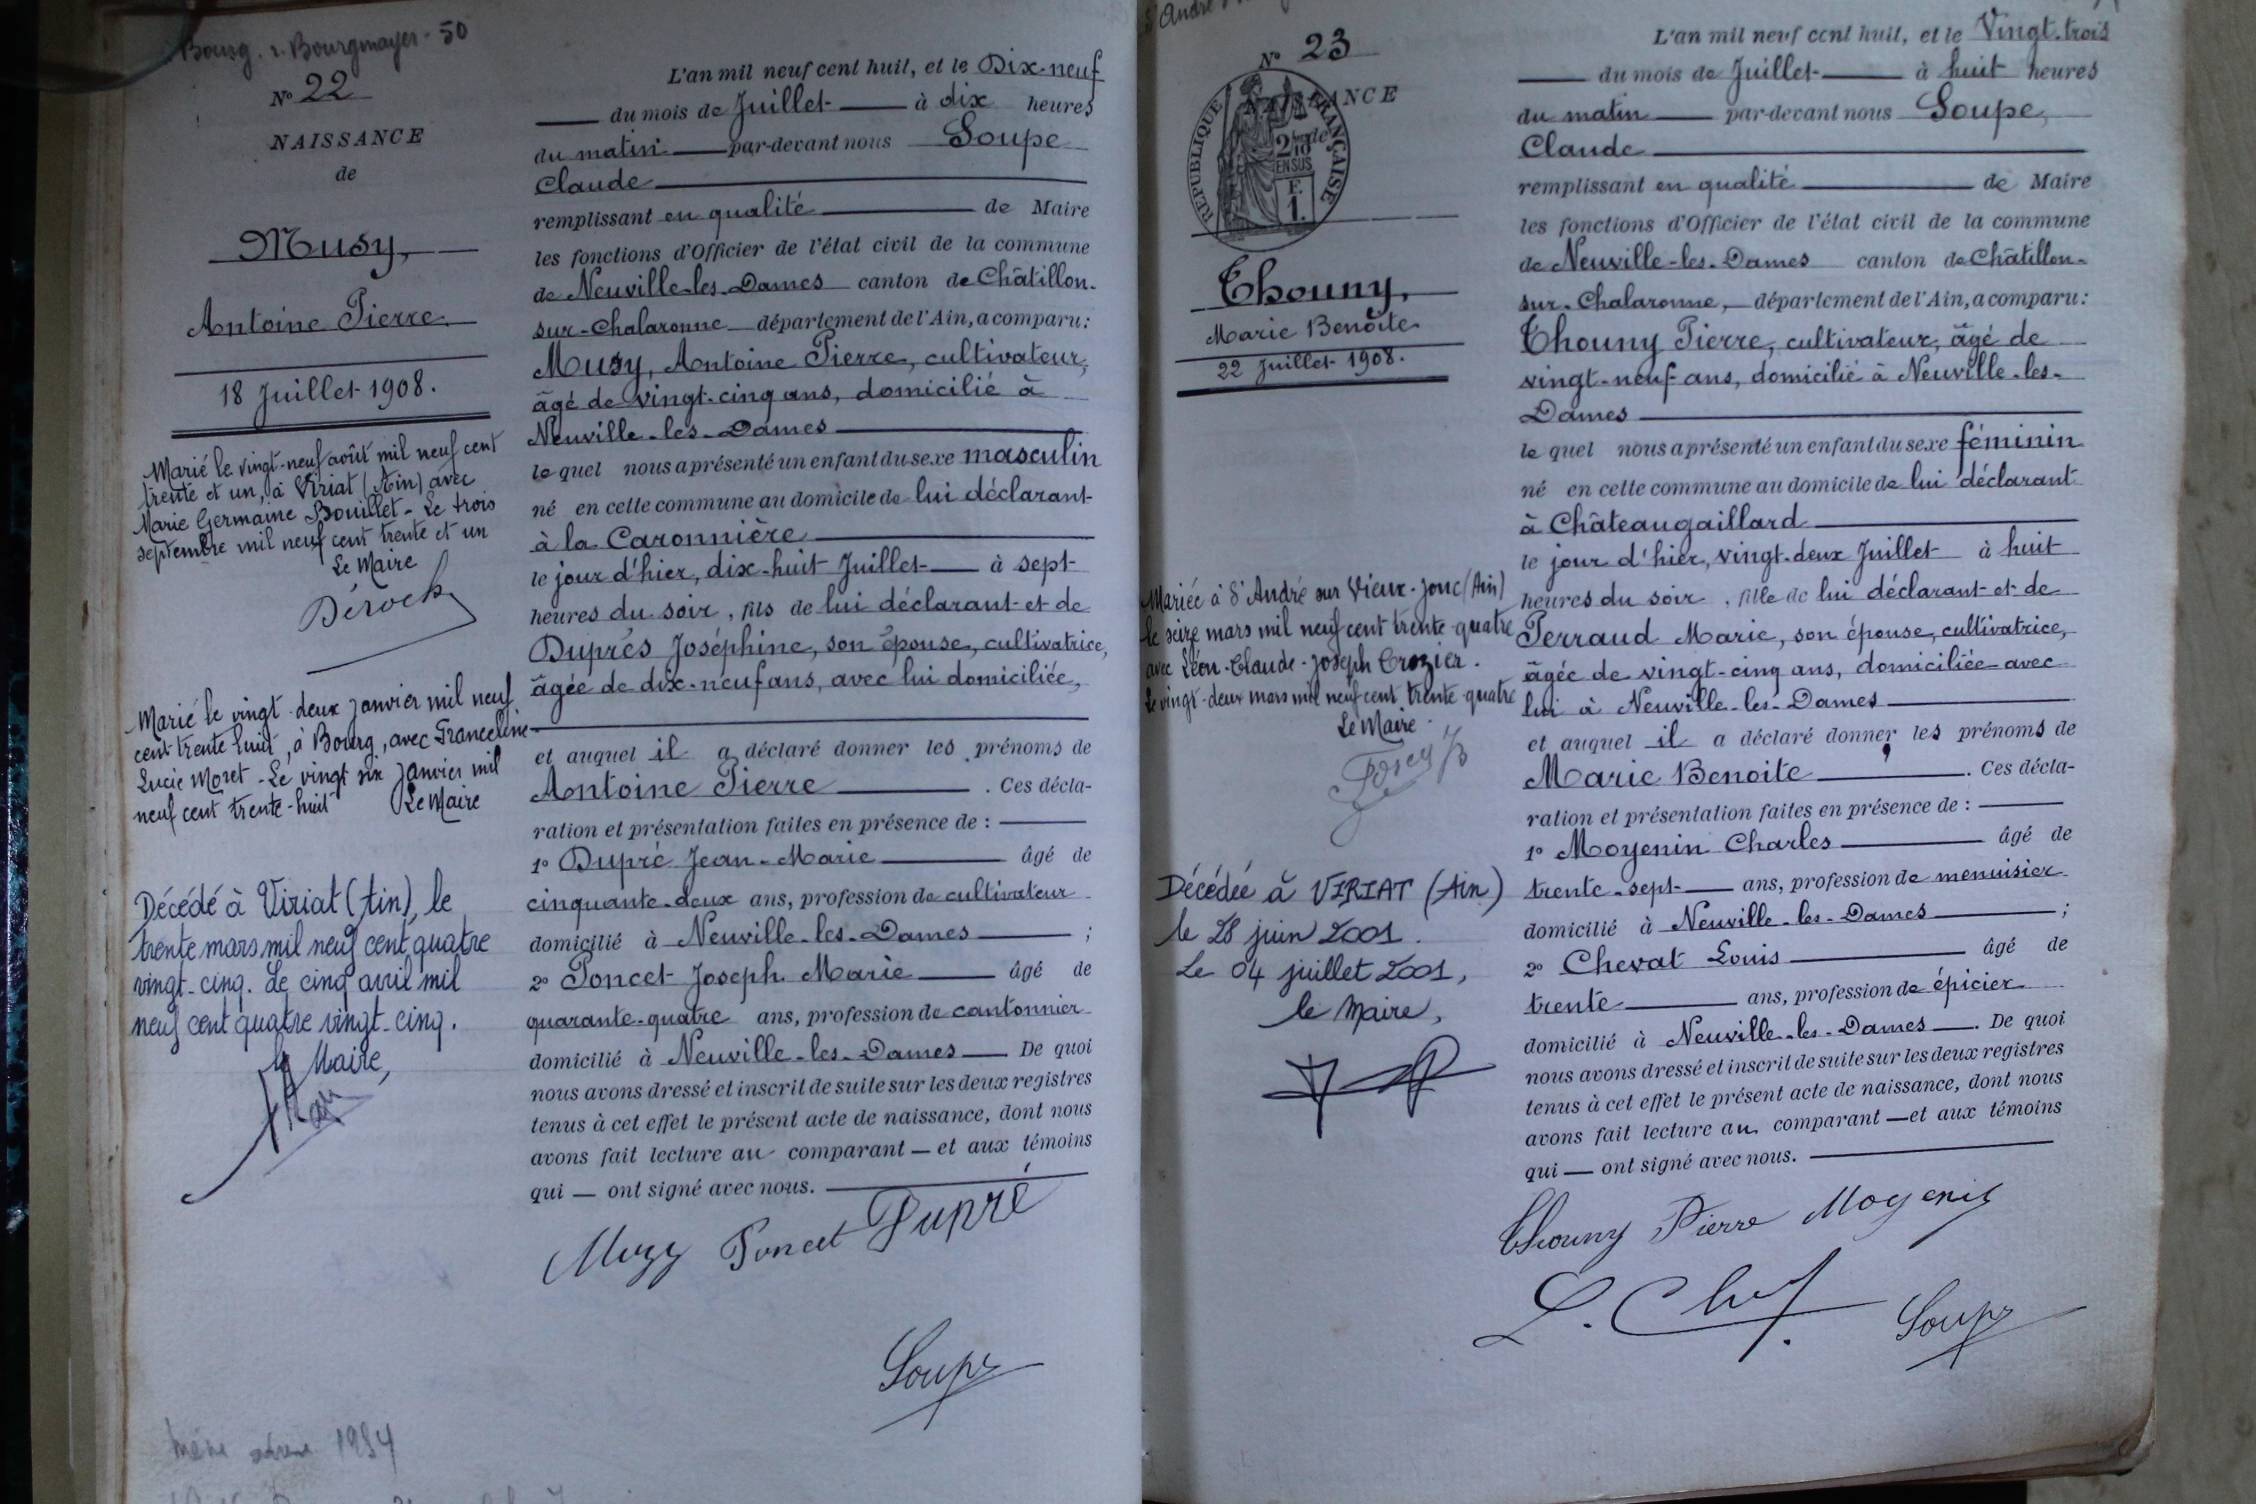 Bourg. r. Bourgmayer - 50
N° 22
NAISSANCE
de
Musy,
Antoine Pierre
18 Juillet 1908.
Marié le vingt-neuf août mil neuf cent
trente et un, à Viriat (Ain) avec
Marie Germaine Bouillet - Le trois
septembre mil neuf cent trente et un
Le Maire
Déroch
Marié le vingt-deux janvier mil neuf
cent trente huit, à Bourg, avec Franceline
Lucie Moret - Le vingt six janvier mil
neuf cent trente-huit Le Maire
Décédé à Viriat (Ain), le
trente mars mil neuf cent quatre
vingt-cinq. Le cinq avril mil
neuf cent quatre vingt-cinq.
Le Maire,
1954
L'an mil neuf cent huit, et le Dix-neuf
du mois de Juillet à dix heures
du matin par-devant nous Soupe
Claude
remplissant en qualité de Maire
les fonctions d'Officier de l'état civil de la commune
de Neuville-les-Dames canton de Châtillon-
sur-Chalaronne département de l'Ain, a comparu:
Musy, Antoine Pierre, cultivateur,
âgé de vingt-cinq ans, domicilié à
Neuville-les-Dames
le quel nous a présenté un enfant du sexe masculin
né en cette commune au domicile de lui déclarant
à la Caronnière
le jour d'hier, dix-huit Juillet à sept
heures du soir, fils de lui déclarant et de
Duprés Joséphine, son épouse, cultivatrice,
âgée de dix-neuf ans, avec lui domiciliée,
et auquel il a déclaré donner les prénoms de
Antoine Pierre . Ces décla-
ration et présentation faites en présence de :
1° Dupré Jean-Marie âgé de
cinquante-deux ans, profession de cultivateur
domicilié à Neuville-les-Dames ;
2° Poncet Joseph Marie âgé de
quarante-quatre ans, profession de cantonnier
domicilié à Neuville-les-Dames De quoi
nous avons dressé et inscrit de suite sur les deux registres
tenus à cet effet le présent acte de naissance, dont nous
avons fait lecture au comparant — et aux témoins
qui — ont signé avec nous.
Muzy Poncet Dupré
Soupe
N° 23
NAISSANCE
RÉPUBLIQUE FRANÇAISE
2/10 de
EN SUS
F.
1.
Thouny,
Marie Benoîte
22 Juillet 1908.
Mariée à St André sur Vieux-Jonc (Ain)
le seize mars mil neuf cent trente-quatre
avec Léon-Claude-Joseph Crozier.
Le vingt-deux mars mil neuf cent trente-quatre
Le Maire
Décédée à VIRIAT (Ain)
le 28 juin 2001.
Le 04 juillet 2001,
le Maire,
L'an mil neuf cent huit, et le Vingt-trois
du mois de Juillet à huit heures
du matin par-devant nous Soupe,
Claude
remplissant en qualité de Maire
les fonctions d'Officier de l'état civil de la commune
de Neuville-les-Dames canton de Châtillon-
sur-Chalaronne, département de l'Ain, a comparu:
Thouny Pierre, cultivateur, âgé de
vingt-neuf ans, domicilié à Neuville-les-
Dames
le quel nous a présenté un enfant du sexe féminin
né en cette commune au domicile de lui déclarant
à Châteaugaillard
le jour d'hier, vingt-deux Juillet à huit
heures du soir, fille de lui déclarant et de
Perraud Marie, son épouse, cultivatrice,
âgée de vingt-cinq ans, domiciliée avec
lui à Neuville-les-Dames
et auquel il a déclaré donner les prénoms de
Marie Benoite . Ces décla-
ration et présentation faites en présence de :
1° Moyenin Charles âgé de
trente-sept ans, profession de menuisier
domicilié à Neuville-les-Dames ;
2° Chevat Louis âgé de
trente ans, profession de épicier
domicilié à Neuville-les-Dames . De quoi
nous avons dressé et inscrit de suite sur les deux registres
tenus à cet effet le présent acte de naissance, dont nous
avons fait lecture au comparant — et aux témoins
qui — ont signé avec nous.
Thouny Pierre Moyenin
Soupe